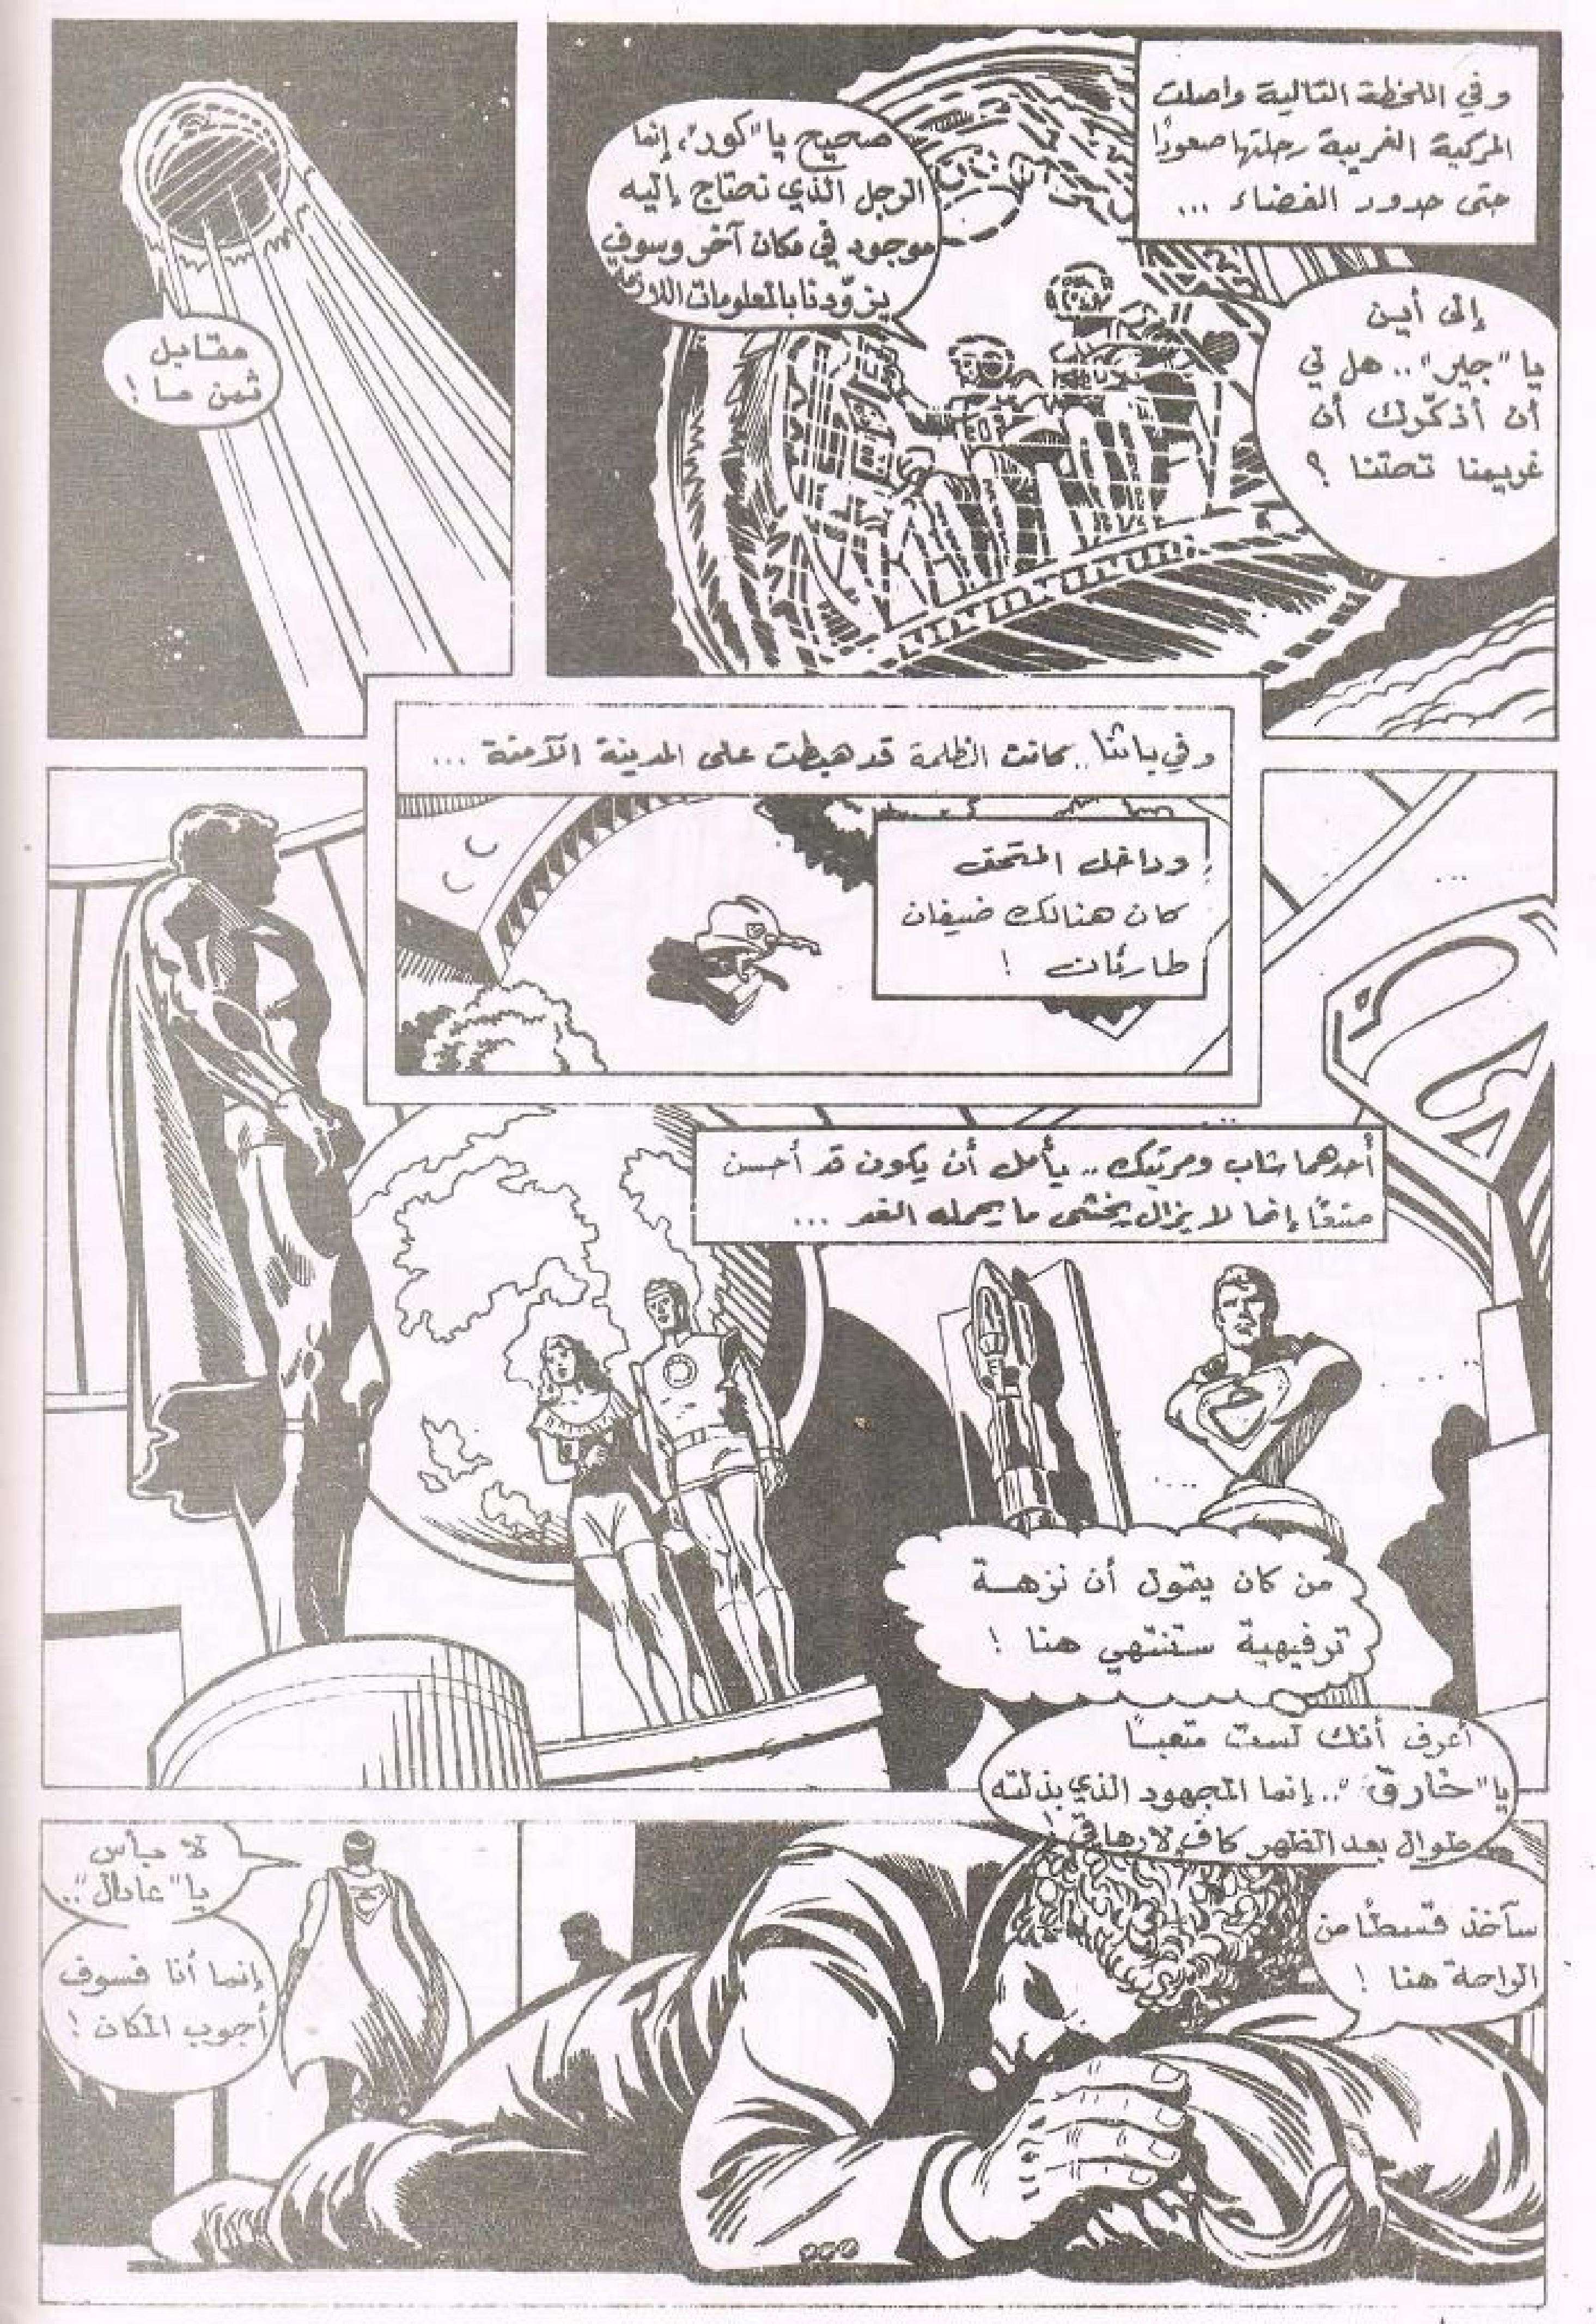 وفي اللحظة التالية واصلت
المركبة الغريبة رحلتها صعودًا
حتى حدود الفضاء ...
إلى أين
يا "جير" .. هل لي
أن أذكّرك أن
غريمنا تحتنا ؟
صحيح يا "كور"، إنما
الرجل الذي نحتاج إليه
موجود في مكان آخر وسوف
يزوّدنا بالمعلومات اللازمة
مقابل
ثمن ما !
وفي .. كانت الظلمة قد هبطت على المدينة الآمنة ...
وداخل المتحف
كان هنالك ضيفان
طارئان !
أحدهما شاب ومرتبك .. يأمل أن يكون قد أحسن
صنعًا إنما لا يزال يخشى ما يحمله الغد ...
من كان يقول أن نزهة
ترفيهية ستنتهي هنا !
أعرف أنك لست متعبًا
يا "خارق" .. إنما المجهود الذي بذلته
طوال بعد الظهر كافٍ لارهاقي !
سآخذ قسطًا من
الراحة هنا !
لا بأس
يا "عادل" ..
إنما أنا فسوف
أجوب المكان !